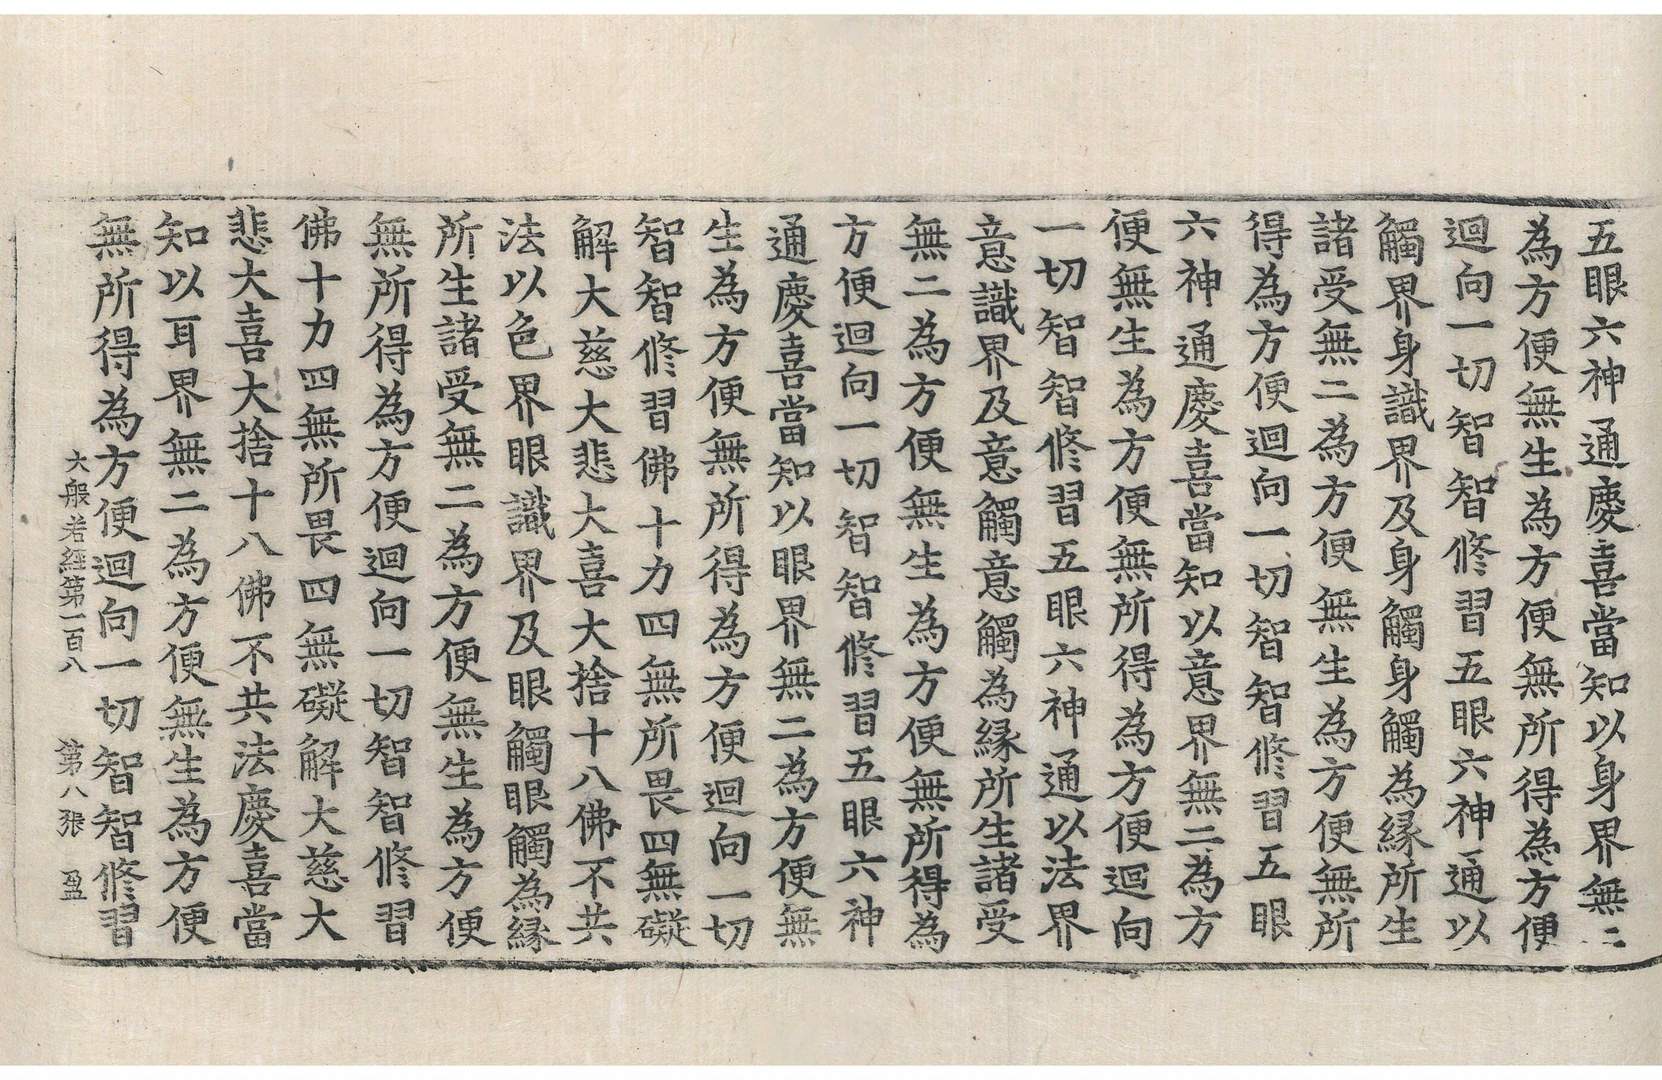 五眼六神通慶喜當知以身界無二
為方便無生為方便無所得為方便
迴向一切智智修習五眼六神通以
觸界身識界及身觸身觸為縁所生
諸受無二為方便無生為方便無所
得為方便迴向一切智智修習五眼
六神通慶喜當知以意界無二為方
便無生為方便無所得為方便迴向
一切智智修習五眼六神通以法界
意識界及意觸意觸為縁所生諸受
無二為方便無生為方便無所得為
方便迴向一切智智修習五眼六神
通慶喜當知以眼界無二為方便無
生為方便無所得為方便迴向一切
智智修習佛十力四無所畏四無礙
解大慈大悲大喜大捨十八佛不共
法以色界眼識界及眼觸眼觸為縁
所生諸受無二為方便無生為方便
無所得為方便迴向一切智智修習
佛十力四無所畏四無礙解大慈大
悲大喜大捨十八佛不共法慶喜當
知以耳界無二為方便無生為方便
無所得為方便迴向一切智智修習
大般若經第一百八 第八張 盈